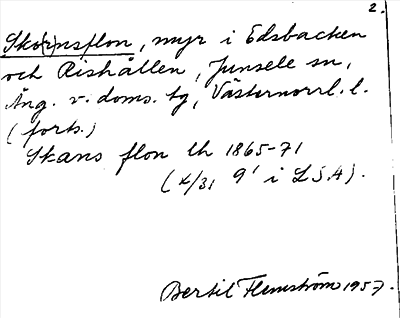 2.
Sko(r)nsflon, myr i Edsbacken
och Rishållen, Junsele sn,
Ång. v. doms. tg, Västernorrl. l.
(forts.)
Skans flon lh 1865-71
(x/31 9' i LSA).
Bertil Flemström 1957.